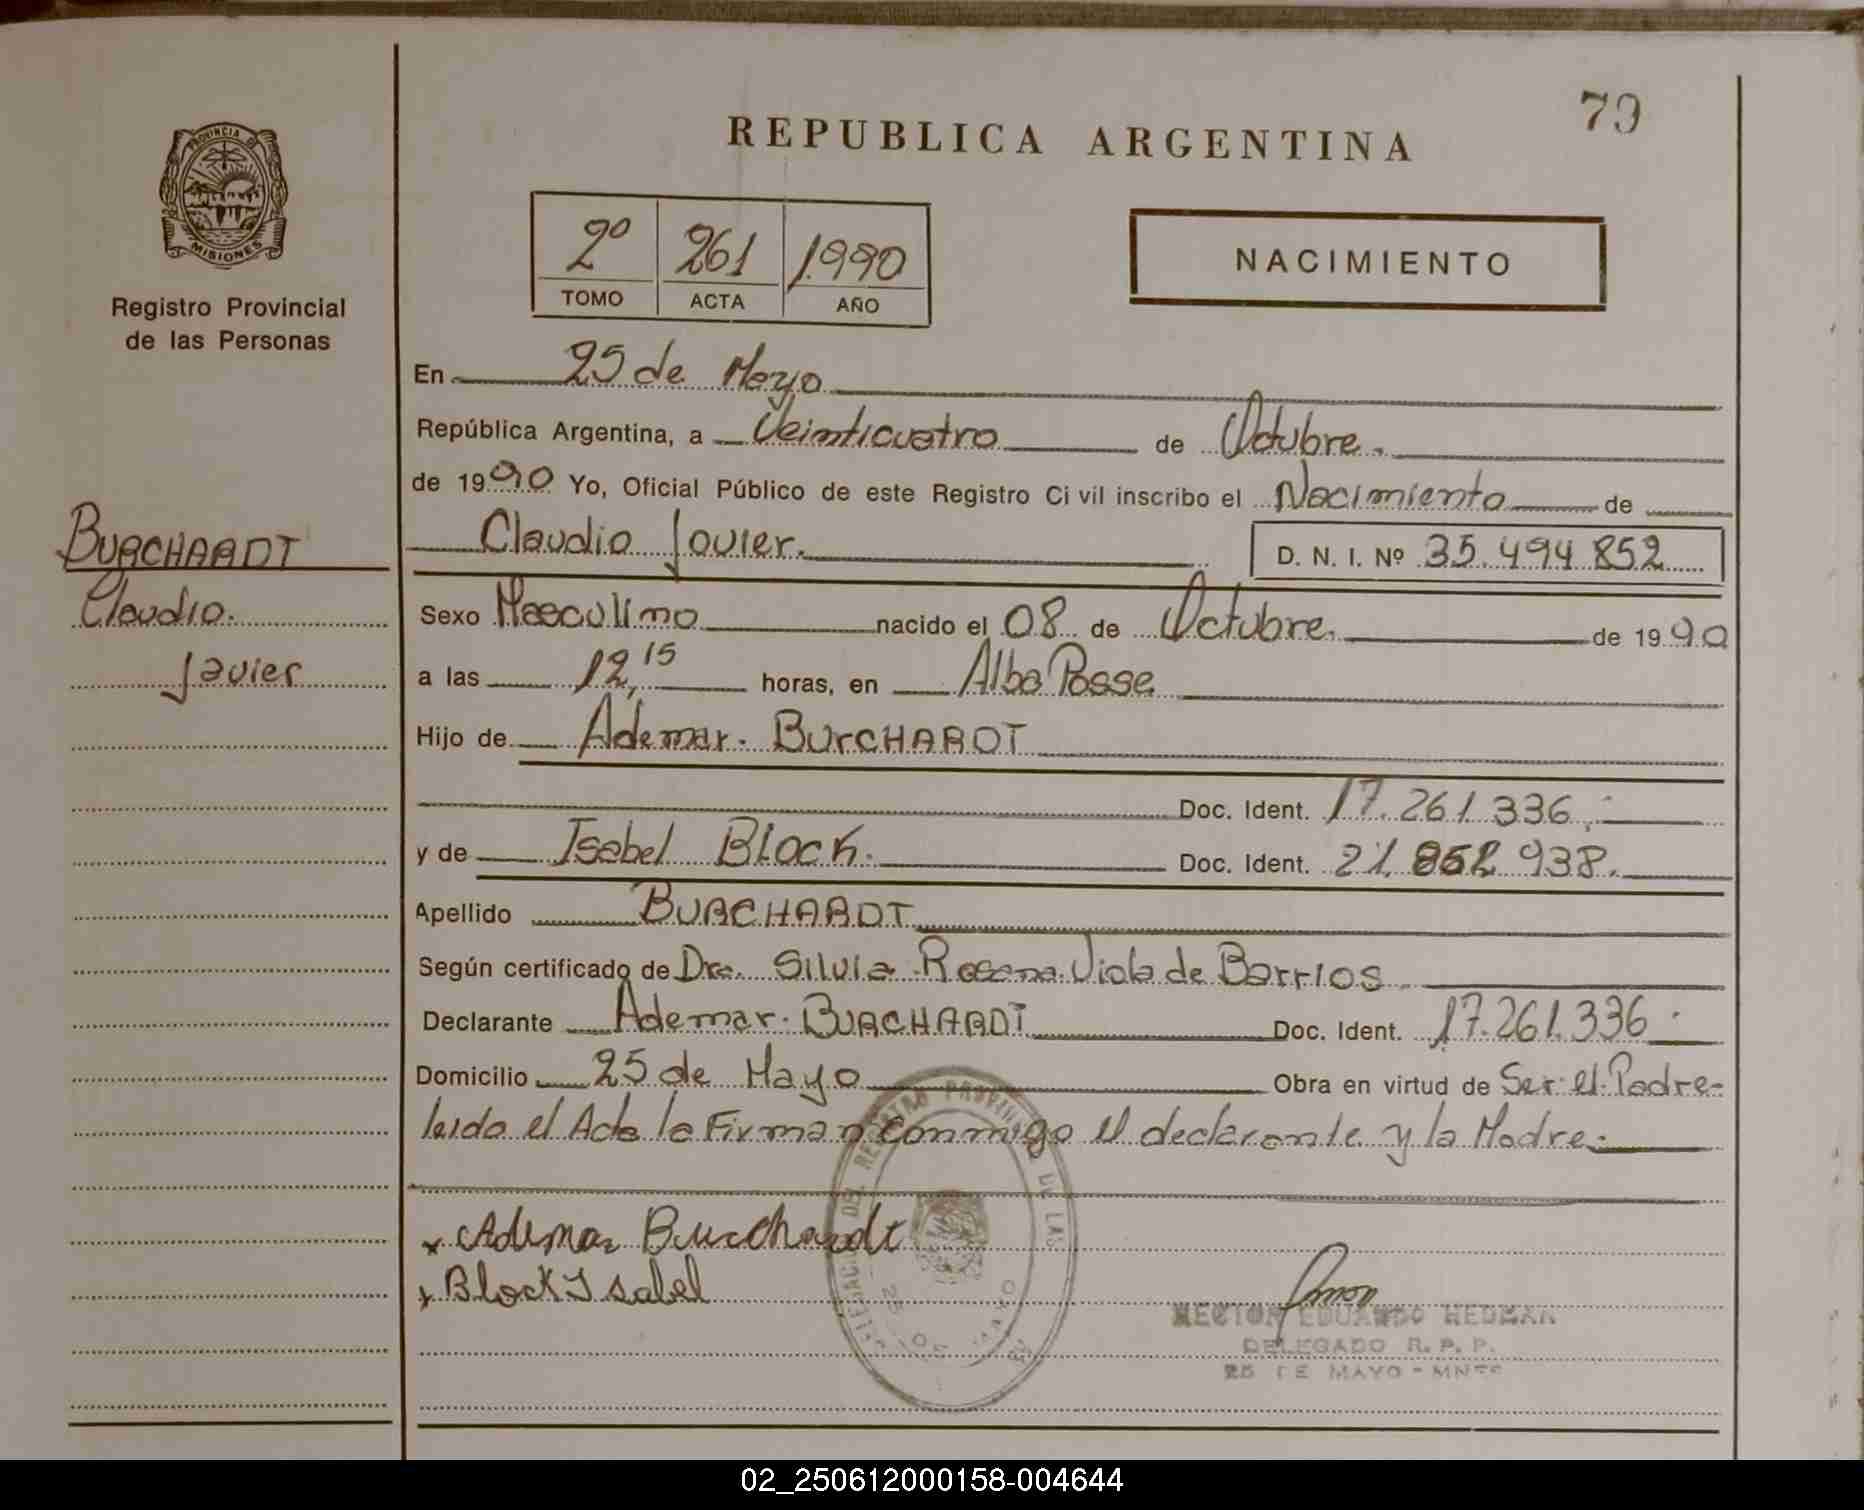 79
REPUBLICA ARGENTINA
PROVINCIA DE
MISIONES
Registro Provincial
de las Personas
2º 261 1.990
TOMO ACTA AÑO
NACIMIENTO
En 25 de Mayo
República Argentina, a Veinticuatro de Octubre.
de 1990 Yo, Oficial Público de este Registro Ci vil inscribo el Nacimiento de
BURCHARDT
Claudio.
Javier
Claudio Javier.
D. N. I. Nº 35.494.852
Sexo Masculino nacido el 08 de Octubre. de 1990
a las 12,15 horas, en Alba Posse
Hijo de Ademar. BUrCHARDT
Doc. Ident. 17.261.336.-
y de Isabel BLock. Doc. Ident. 21.862.938.
Apellido BURCHARDT
Según certificado de Dra. Silvia Rosana Viola de Barrios
Declarante Ademar. BURCHARDT Doc. Ident. 17.261.336.
Domicilio 25 de Mayo Obra en virtud de Ser el Padre-
leido el Acta la Firman conmigo el declarante y la Madre.
x Ademar Burchardt
x Block Isabel
DELEGACION DEL REGISTRO PROVINCIAL DE LAS
25 DE MAYO
HECTOR EDUARDO HEDMAN
DELEGADO R. P. P.
25 DE MAYO - MNES
02_250612000158-004644